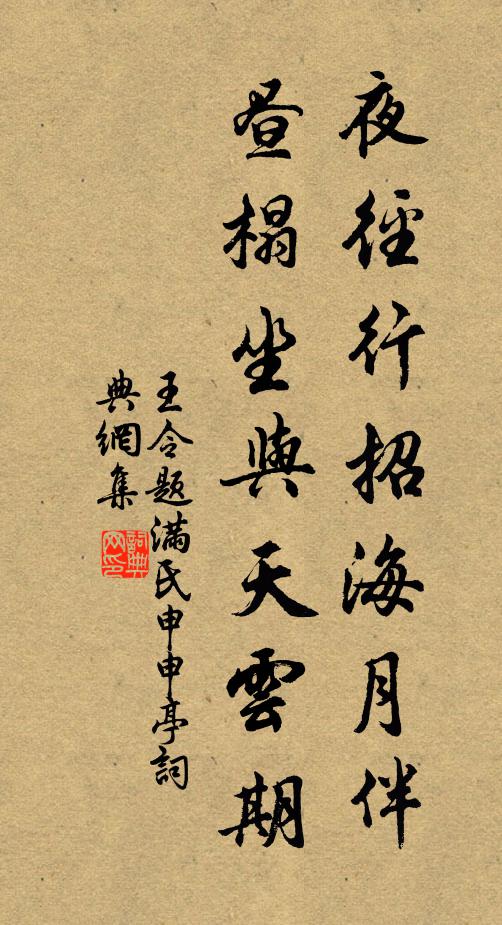 夜徑行招海月伴
昼榻坐與天雲期
王令題滿氏申申亭詞
典網集
詞典網印